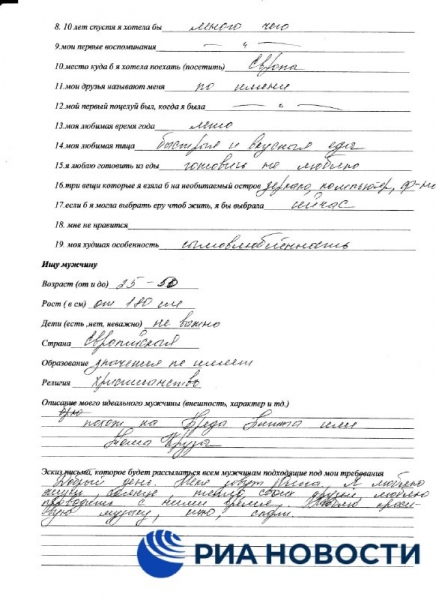 8. 10 лет спустя я хотела бы много чего
9.мои первые воспоминания — " —
10.место куда б я хотела поехать (посетить) Европа
11.мои друзья называют меня по имени
12.мой первый поцелуй был, когда я была — " —
13.моя любимая время года лето
14.моя любимая пища быстрая и вкусная еда
15.я люблю готовить из еды готовить не люблю
16.три вещи которые я взяла б на необитаемый остров зеркало, компьютер,
17.если б я могла выбрать еру чтоб жить, я бы выбрала сейчас
18. мне не нравится
19. моя худшая особенность самовлюбленность
Ищу мужчину
Возраст (от и до) 25 - 50
Рост ( в см) от 180 см
Дети (есть ,нет, неважно) не важно
Страна Европейская
Образование значения не имеет
Религия христианство
Описание моего идеального мужчины (внешность, характер и тд.)
похож на Бреда Питта или
Тома Круза
Эскиз письма, которое будет рассылаться всем мужчинам подходящие под мои требования
Добрый день. Меня зовут Я люблю
своих друзей люблю
проводить с ними время. Люблю
музыку,
РИА НОВОСТИ